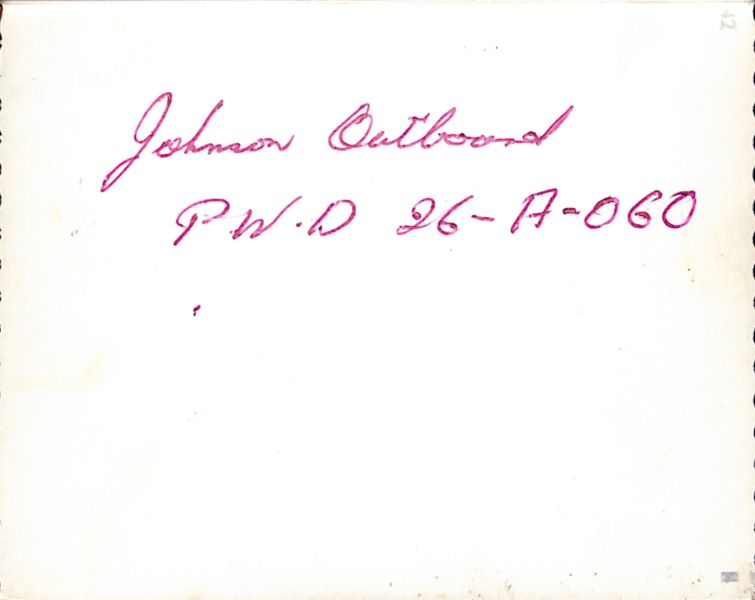 Johnson Outboard
P.W.D 26-A-060
42